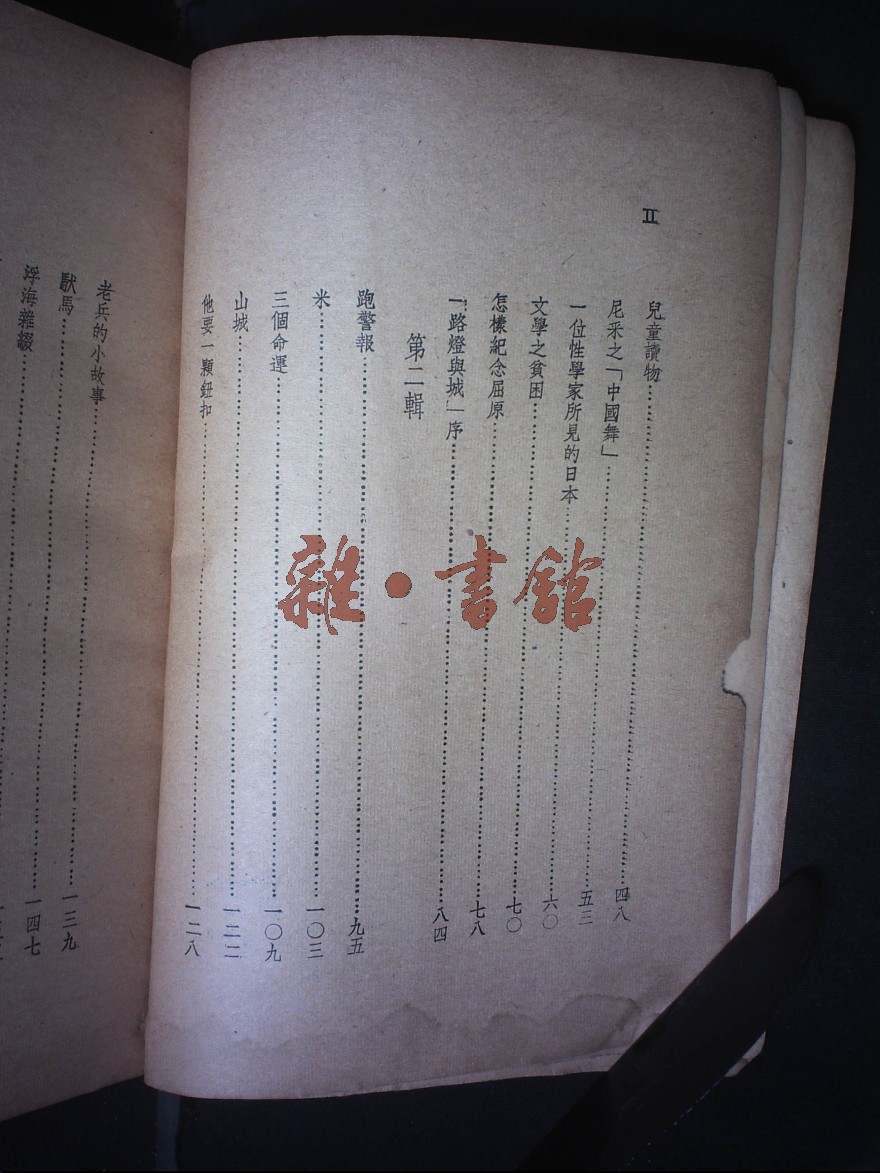 II
兒童讀物……四八
尼采之「中國舞」……五三
一位性學家所見的日本……六〇
文學之貧困……七〇
怎樣紀念屈原……七八
「路燈與城」序……八四
第二輯
跑警報……九五
米……一〇三
三個命運……一〇九
山城……一二二
他要一顆鈕扣……一二八
老兵的小故事
獸馬……一三九
浮海雜綴……一四七
雜·書館